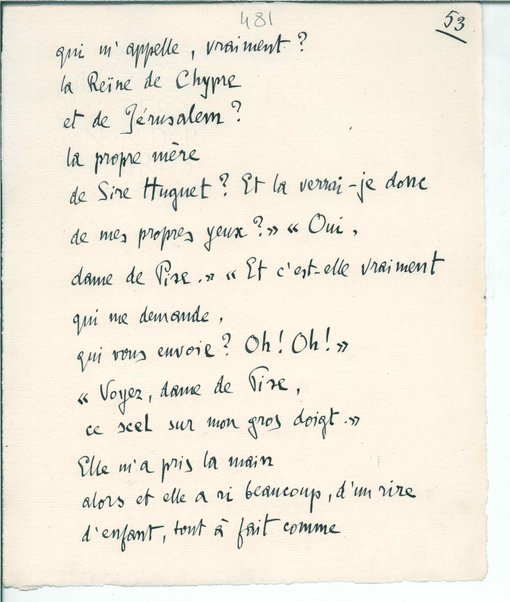 481
53
qui m'appelle, vraiment ?
la Reïne de Chypre
et de Jérusalem ?
la propre mère
de Sire Huguet ? Et la verrai-je donc
de mes propres yeux ? » « Oui,
dame de Pise. » « Et c'est-elle vraiment
qui me demande,
qui vous envoie ? Oh ! Oh ! »
« Voyez, dame de Pise,
ce scel sur mon gros doigt. »
Elle m'a pris la main
alors et elle a ri beaucoup, d'un rire
d'enfant, tout à fait comme